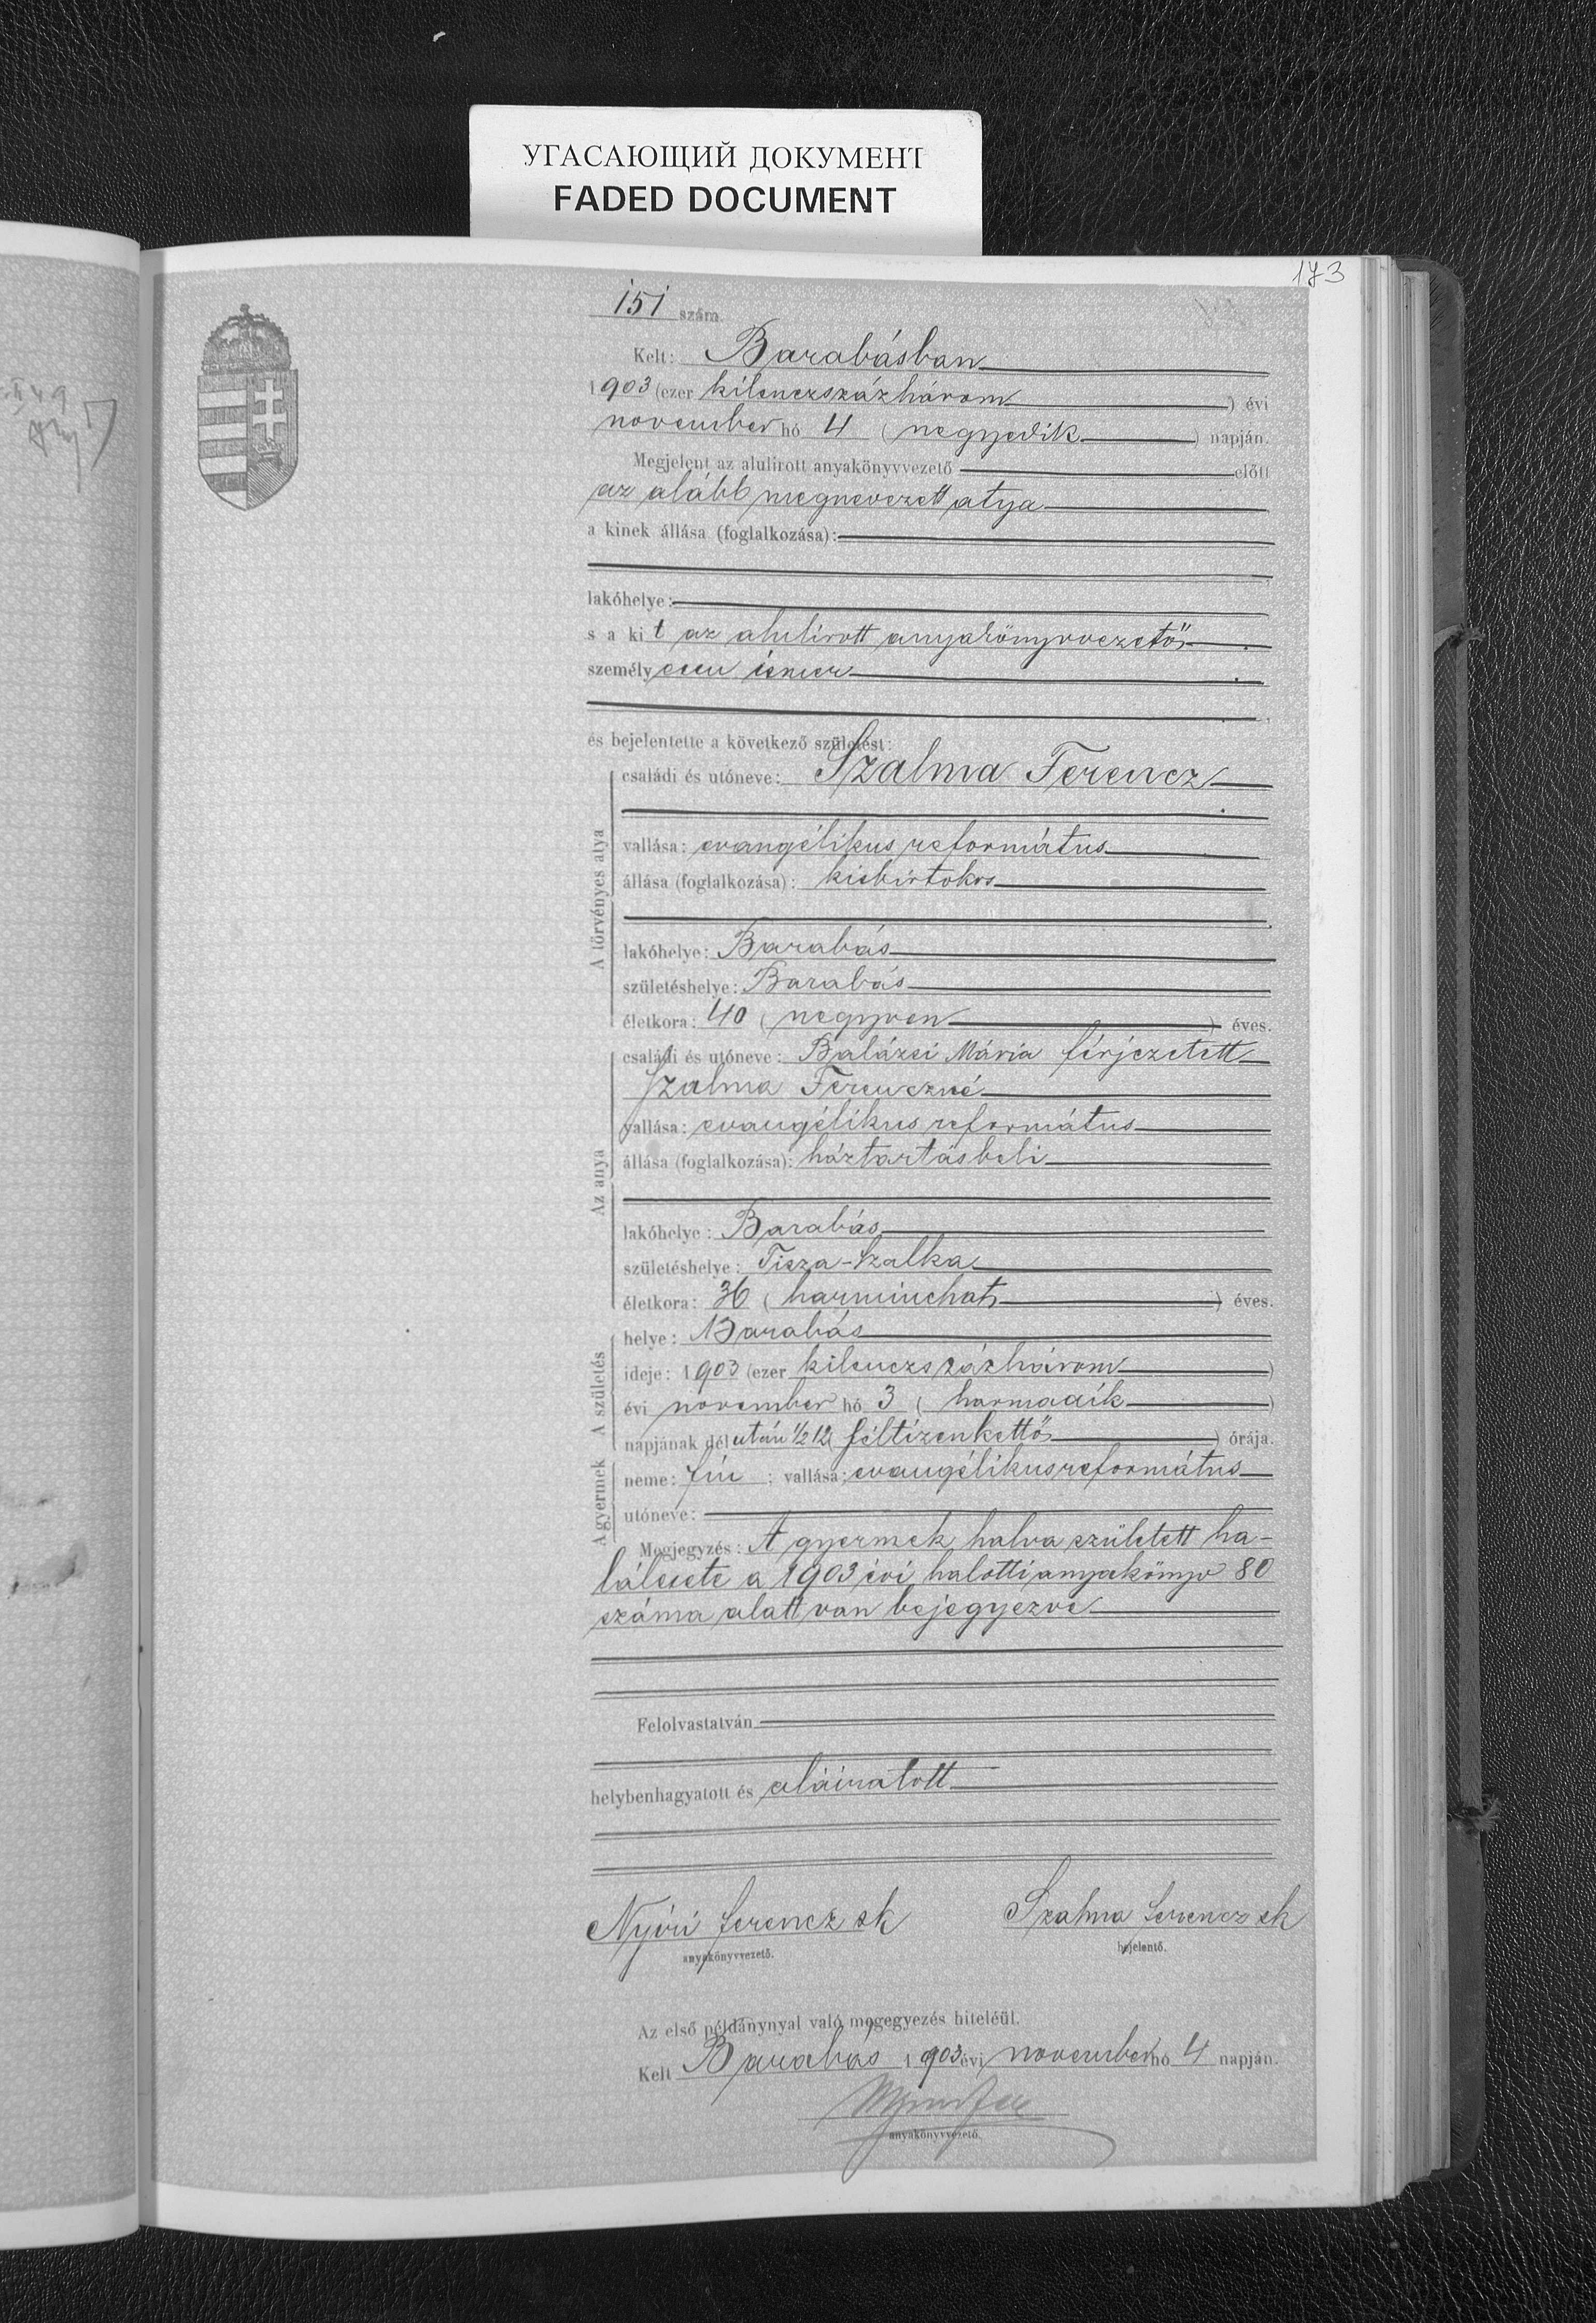 УГАСАЮЩИЙ ДОКУМЕНТ
FADED DOCUMENT
173
151 szám.
Kelt: Barabásban
1903 (ezer kilenczszázhárom) évi
november hó 4 (negyedik) napján.
Megjelent az alulirott anyakönyvvezető előtt
az alább megnevezett atya
a kinek állása (foglalkozása):
lakóhelye:
s a kit az alulirott anyakönyvvezető
személyesen ismer
és bejelentette a következő születést:
A törvényes atya
családi és utóneve: Szalma Ferencz
vallása: evangélikus református
állása (foglalkozása): kisbirtokos
lakóhelye: Barabás
születéshelye: Barabás
életkora: 40 (negyven) éves.
Az anya
családi és utóneve: Balázsi Mária férjezetett
Szalma Ferenczné
vallása: evangélikus református
állása (foglalkozása): háztartásbeli
lakóhelye: Barabás
születéshelye: Tisza-Szalka
életkora: 36 (harminchat) éves.
A születés
helye: Barabás
ideje: 1903 (ezer kilenczszázhárom)
évi november hó 3 (harmadik)
napjának délután 1/2 12 (féltizenkettő) órája.
A gyermek
neme: fiu; vallása: evangélikus református
utóneve:
Megjegyzés: A gyermek halva született ha-
lálesete a 1903 évi halotti anyakönyv 80
száma alatt van bejegyezve
Felolvastatván
helybenhagyatott és aláiratott
Nyíri Ferencz sk
Szalma Ferencz sk
anyakönyvvezető.
bejelentő.
Az első példánynyal való megegyezés hiteléül.
Kelt Barabás 1903 évi november hó 4 napján.
anyakönyvvezető.